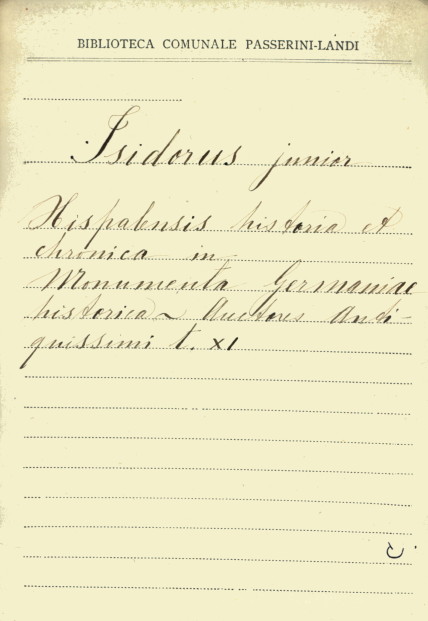 BIBLIOTECA COMUNALE PASSERINI-LANDI
Isidorus junior
Hispalensis historia et
chronica in
Monumenta Germaniae
historica ~ Auctores Anti-
quissimi t. XI